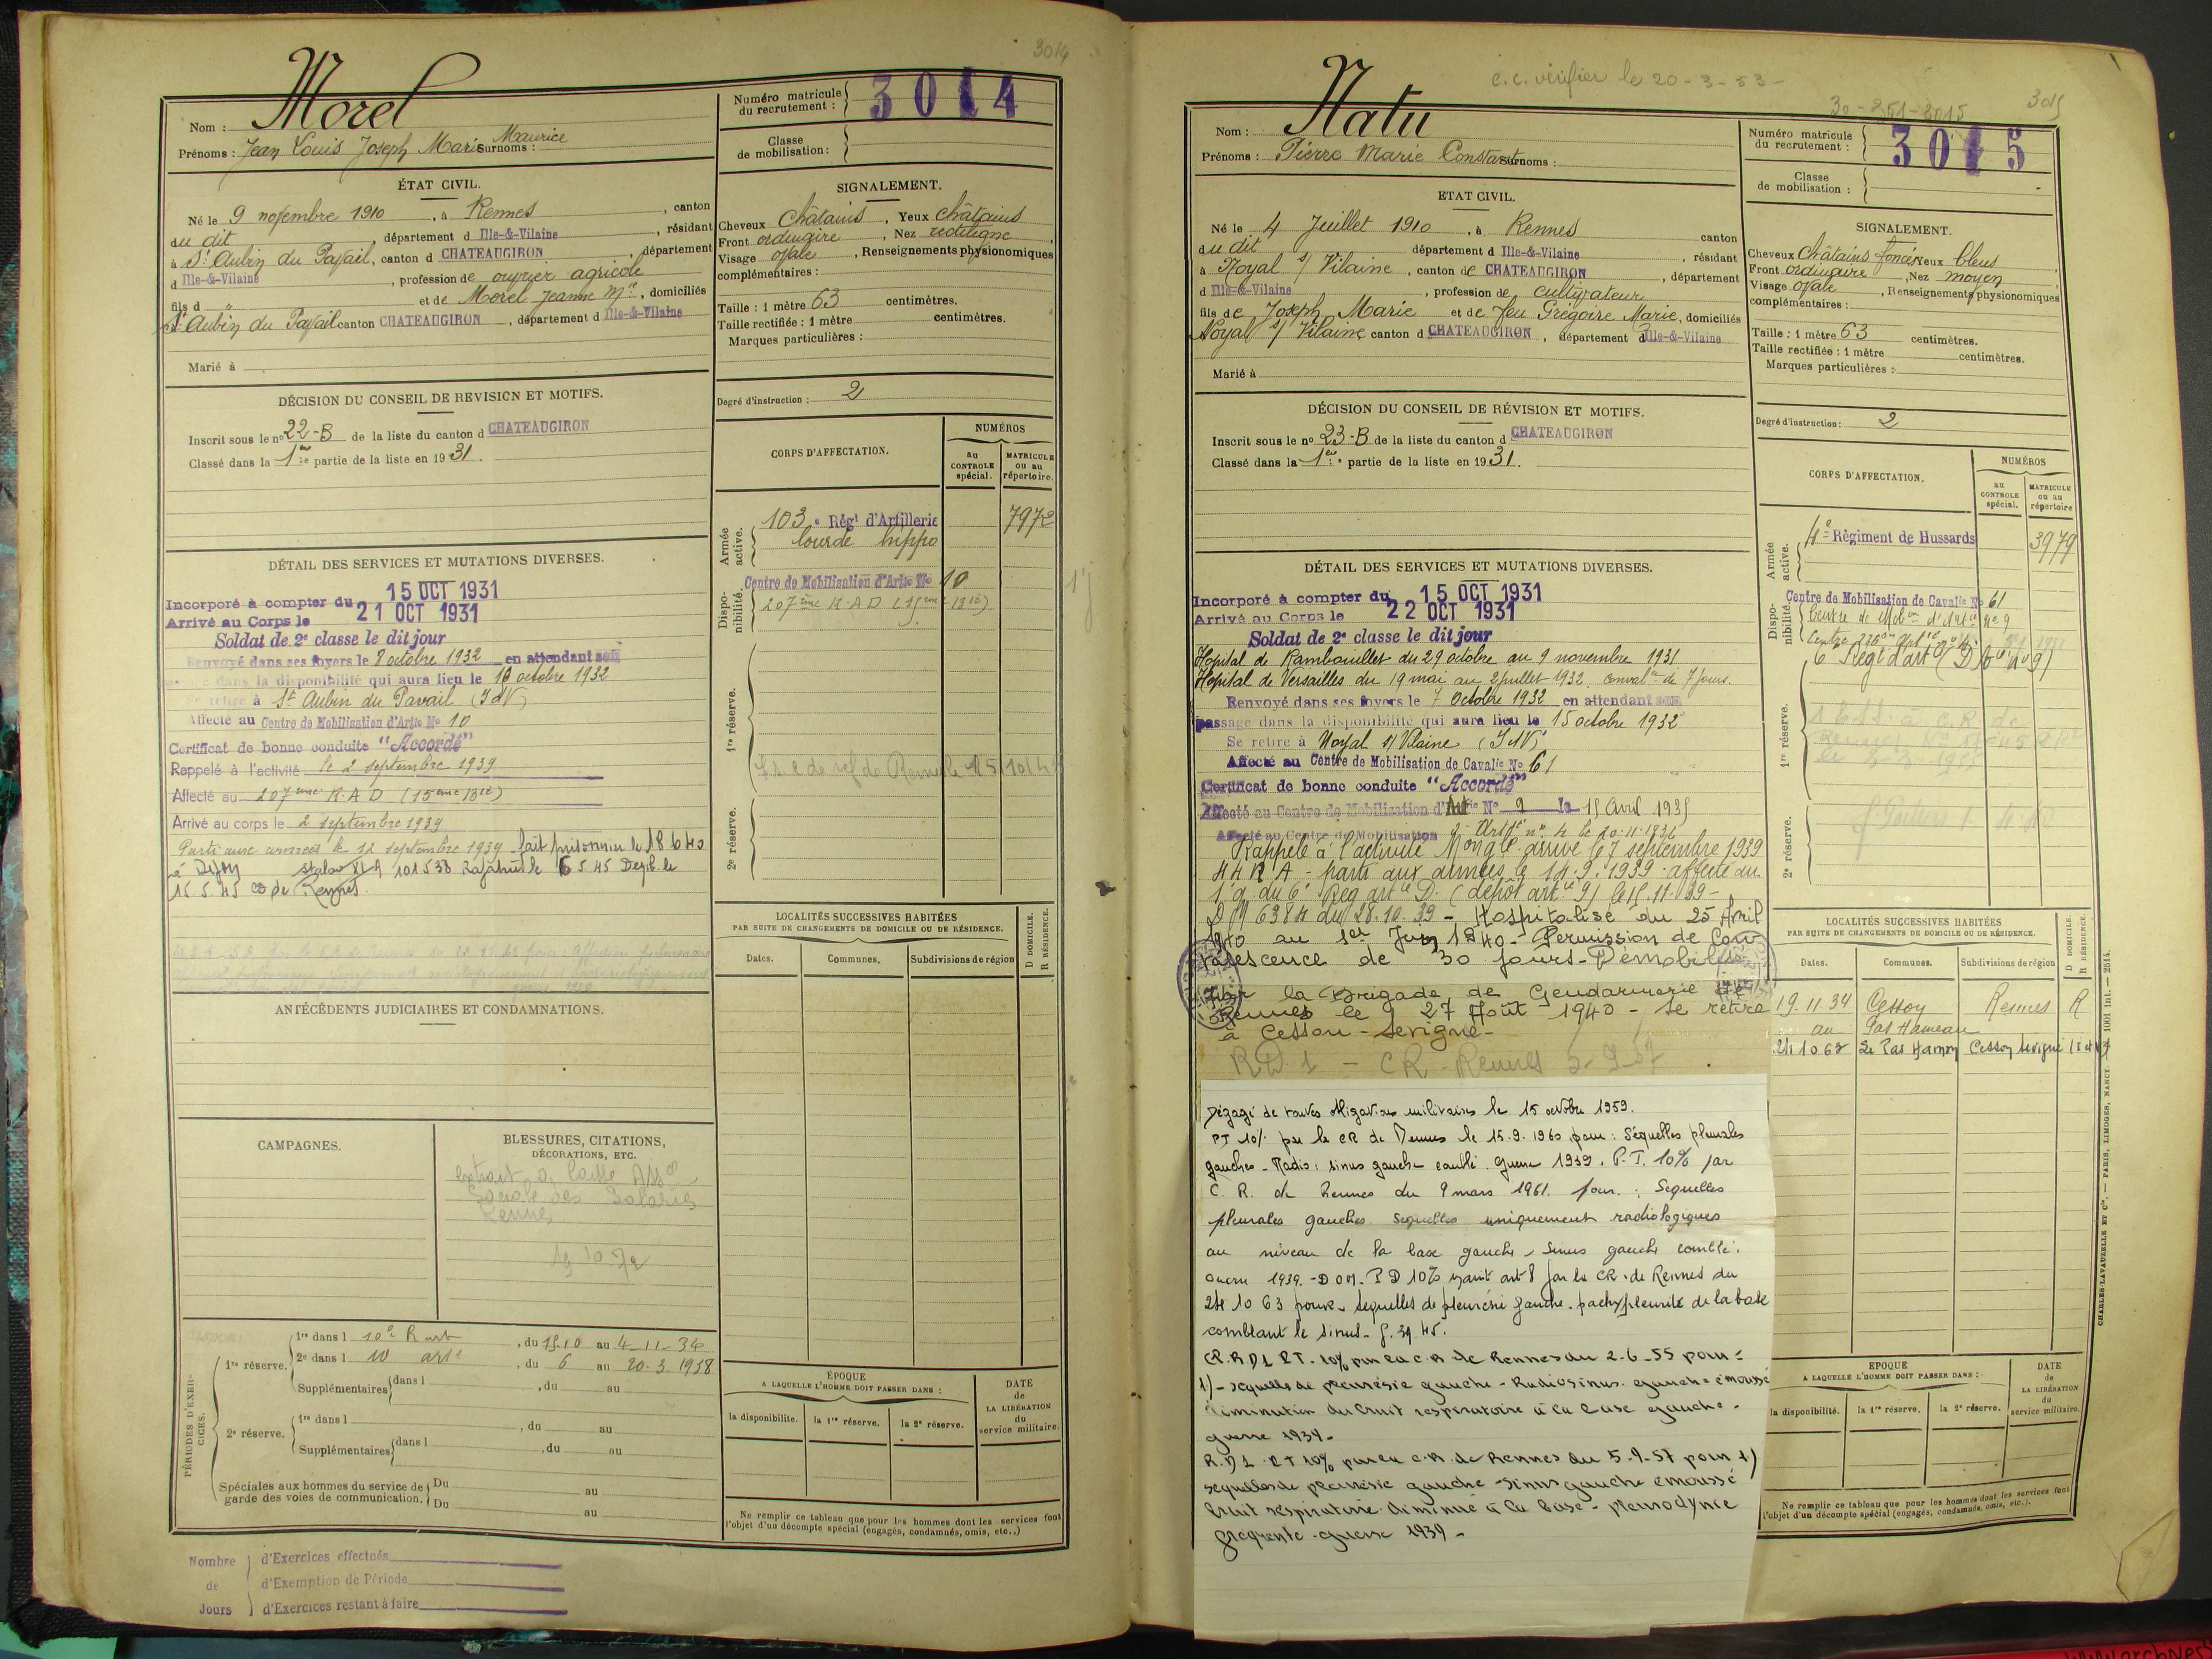 3014
Nom : Morel
Prénoms : Jean Louis Joseph Marie Surnoms : Maurice
Numéro matricule
du recrutement : 3014
Classe
de mobilisation :
ÉTAT CIVIL.
Né le 9 novembre 1910, à Rennes, canton
du dit, département d Ille-&-Vilaine, résidant
à St Aubin du Pavail, canton d CHATEAUGIRON, département
d Ille-&-Vilaine, profession de ouvrier agricole
fils d " et de Morel Jeanne Mie, domiciliés
St Aubin du Pavail canton CHATEAUGIRON, département d Ille-&-Vilaine
Marié à
SIGNALEMENT.
Cheveux Châtains, Yeux châtains
Front ordinaire, Nez rectiligne,
Visage ovale, Renseignements physionomiques
complémentaires :
Taille : 1 mètre 63 centimètres.
Taille rectifiée : 1 mètre centimètres.
Marques particulières :
Degré d'instruction : 2
DÉCISION DU CONSEIL DE REVISION ET MOTIFS.
Inscrit sous le no 22-B de la liste du canton d CHATEAUGIRON
Classé dans la 1re partie de la liste en 1931.
CORPS D'AFFECTATION.
NUMÉROS
au CONTROLE spécial.
MATRICULE ou au répertoire.
Armée active.
103e Régt d'Artillerie 7972
lourde hippo
Disponibilité.
Centre de Mobilisation d'Artie No 10
207ème R.A.D (15ème Bie)
1re réserve.
2e réserve.
DÉTAIL DES SERVICES ET MUTATIONS DIVERSES.
Incorporé à compter du 15 OCT 1931
Arrivé au Corps le 21 OCT 1931
Soldat de 2e classe le dit jour
Renvoyé dans ses foyers le 8 octobre 1932 en attendant son
passage dans la disponibilité qui aura lieu le 16 octobre 1932
Se retire à St Aubin du Pavail (I&V)
Affecté au Centre de Mobilisation d'Artie No 10
Certificat de bonne conduite "Accordé"
Rappelé à l'activité le 2 septembre 1939
Affecté au 207ème R.A.D (15ème Bie)
Arrivé au corps le 2 septembre 1939
Parti aux armées le 12 septembre 1939 fait prisonnier le 18 6 40
à Dijon stalag XI A 101533 Rapatrié le 6 5 45 Démob. le
15 5 45 CD de Rennes.
ANTÉCÉDENTS JUDICIAIRES ET CONDAMNATIONS.
LOCALITÉS SUCCESSIVES HABITÉES
PAR SUITE DE CHANGEMENTS DE DOMICILE OU DE RÉSIDENCE.
D DOMICILE.
R RÉSIDENCE.
Dates. Communes. Subdivisions de région
CAMPAGNES.
BLESSURES, CITATIONS,
DÉCORATIONS, ETC.
Extrait à Caisse Assce
Sociale des Salariés
Rennes
19 10 72
PÉRIODES D'EXERCICES.
1re réserve.
1re dans l 10e R art, du 15.10 au 4-11-34
2e dans l 10 arte, du 6 au 20.3.1938
Supplémentaires dans l , du au
2e réserve.
1re dans l , du au
Supplémentaires dans l , du au
Spéciales aux hommes du service de
garde des voies de communication.
Du au
Du au
EPOQUE
A LAQUELLE L'HOMME DOIT PASSER DANS :
la disponibilite. la 1re réserve. la 2e réserve.
DATE de LA LIBÉRATION du service militaire.
Ne remplir ce tableau que pour les hommes dont les services font
l'objet d'un décompte spécial (engagés, condamnés, omis, etc..)
Nombre de Jours
d'Exercices effectués
d'Exemption de Période
d'Exercices restant à faire
c.c. vérifier le 20-3-53-
30-251-3015
3015
Nom : Natu
Prénoms : Pierre Marie Constant Surnoms :
Numéro matricule
du recrutement : 3015
Classe
de mobilisation :
ETAT CIVIL.
Né le 4 Juillet 1910, à Rennes canton
du dit département d Ille-&-Vilaine, résidant
à Noyal s/ Vilaine, canton de CHATEAUGIRON, département
d Ille-&-Vilaine, profession de cultivateur
fils de Joseph Marie et de feu Grégoire Marie, domiciliés
Noyal s/ Vilaine canton d CHATEAUGIRON, département d Ille-&-Vilaine
Marié à
SIGNALEMENT.
Cheveux Châtains foncés Yeux bleus
Front ordinaire, Nez moyen
Visage ovale, Renseignements physionomiques
complémentaires :
Taille : 1 mètre 63 centimètres.
Taille rectifiée : 1 mètre centimètres.
Marques particulières :
Degré d'instruction : 2
DÉCISION DU CONSEIL DE RÉVISION ET MOTIFS.
Inscrit sous le no 23-B de la liste du canton d CHATEAUGIRON
Classé dans la 1re partie de la liste en 1931.
CORPS D'AFFECTATION.
NUMÉROS
au CONTROLE spécial.
MATRICULE ou au répertoire
Armée active.
4e Régiment de Hussards 3979
Disponibilité.
Centre de Mobilisation de Cavalie No 61
Centre de Mobon d'Artie no 9
6e Régt d'art D
1re réserve.
2e réserve.
DÉTAIL DES SERVICES ET MUTATIONS DIVERSES.
Incorporé à compter du 15 OCT 1931
Arrivé au Corps le 22 OCT 1931
Soldat de 2e classe le dit jour
Hôpital de Rambouillet du 29 octobre au 9 novembre 1931
Hôpital de Versailles du 19 mai au 2 juillet 1932. Convalce de 7 jours.
Renvoyé dans ses foyers le 7 Octobre 1932 en attendant son
passage dans la disponibilité qui aura lieu le 15 octobre 1932
Se retire à Noyal s/ Vilaine (I&V)
Affecté au Centre de Mobilisation de Cavalie No 61
Certificat de bonne conduite "Accordé"
Affecté au Centre de Mobilisation d'Artie No 9 le 15 Avril 1935
Affecté au Centre de Mobilisation d'Artie no 4 le 20.11.1936
Rappelé à l'activité arrivé le 7 septembre 1939
44 R.A - parti aux armées le 14.9.1939 - affecté au
1er g. du 6e Reg art D. (dépôt artie 9) le 15.11.39 -
D.M 6384 du 28.10.39 - Hospitalisé du 25 Avril
1940 au 1er Juin 1940 - Permission de Conva
lescence de 30 jours - Démobilisé
par la Brigade de Gendarmerie de
Rennes le 27 Août 1940 - Se retire
à Cesson-Sévigné -
RD 1 - CR. Rennes 5-9-57
Dégagé de toutes obligations militaires le 15 octobre 1959.
PT 10% par la CR de Rennes le 15.9.1960 pour : Séquelles pleurales
gauches - Radio : sinus gauche comblé. Guerre 1939. P.T. 10% par
C. R. de Rennes du 9 mars 1961. pour : Sequelles
pleurales gauches. Sequelles uniquement radiologiques
au niveau de la base gauche, Sinus gauche comblé.
Guerre 1939. - DOM. PD 10% art 8 par la CR. de Rennes du
24 10 63 pour. sequelles de pleurésie gauche. pachypleurite de la base
comblant le sinus. G. 39 45.
C.R. R D 1 PT. 10% par la C.R de Rennes du 2-6-55 pour :
1) - séquelles de pleurésie gauche - Radio sinus gauche émoussé
diminution du bruit respiratoire à la base gauche -
guerre 1939 -
R.D 1 PT 10% par la C.R. de Rennes du 5-9-57 pour 1)
sequelles de pleurésie gauche - Sinus gauche émoussé
bruit respiratoire diminué à la base - pleurodynie
fréquente - guerre 1939 -
LOCALITÉS SUCCESSIVES HABITÉES
PAR SUITE DE CHANGEMENTS DE DOMICILE OU DE RÉSIDENCE.
D DOMICILE.
R RÉSIDENCE.
Dates. Communes. Subdivisions de région
19.11.34 Cesson Rennes R
au Pas Hameau
24 10 63 Le Pas Hamon Cesson Sévigné (I&V)
EPOQUE
A LAQUELLE L'HOMME DOIT PASSER DANS :
la disponibilité. la 1re réserve. la 2e réserve.
DATE de LA LIBÉRATION du service militaire.
Ne remplir ce tableau que pour les hommes dont les services font
l'objet d'un décompte spécial (engagés, condamnés, omis, etc.).
CHARLES-LAVAUZELLE ET Cie. — PARIS, LIMOGES, NANCY 1001 int. — 2514.